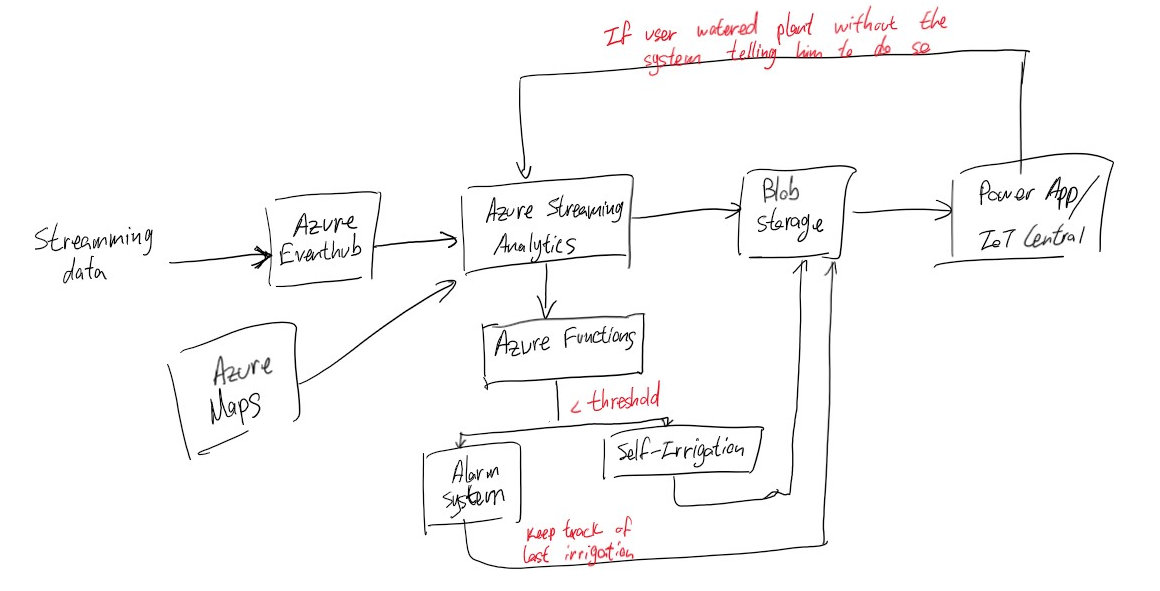 If user watered plant without the
system telling him to do so
Streamming
data
Azure
Eventhub
Azure Streaming
Analytics
Blob
storage
Power App/
IoT Central
Azure
Maps
Azure Functions
< threshold
Self-Irrigation
Alarm
system
keep track of
last irrigation